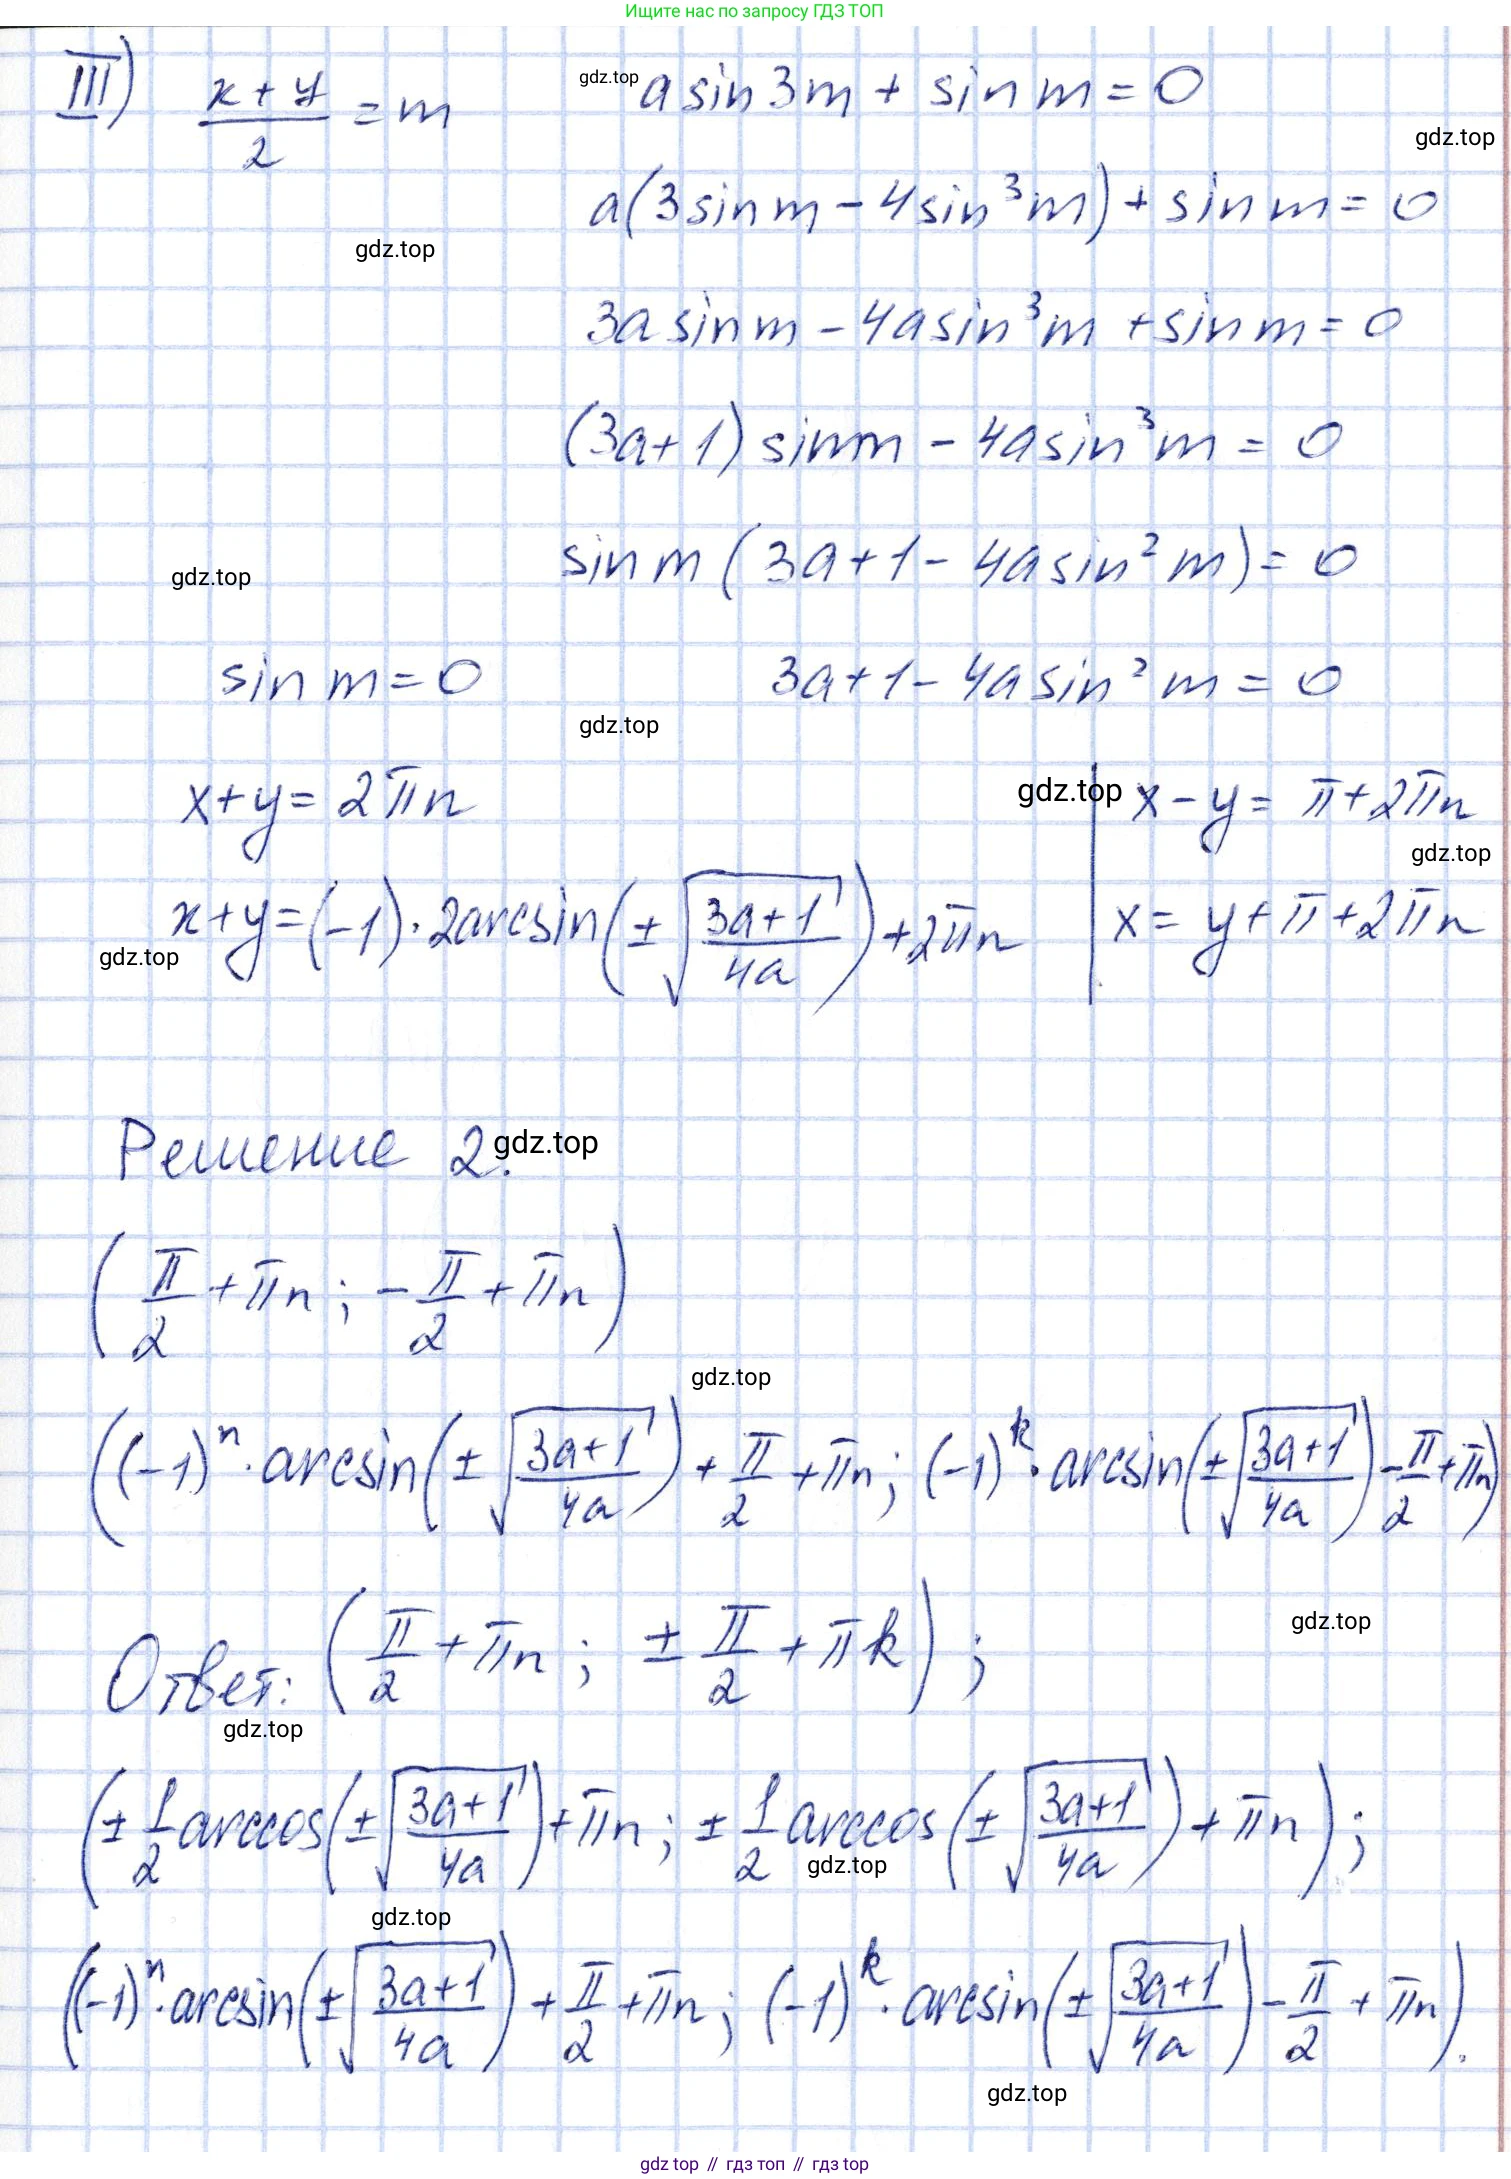 Ищите нас по запросу ГДЗ ТОП
III) (x+y)/2 = m   a sin 3m + sin m = 0
gdz.top
gdz.top
a(3 sin m − 4 sin³ m) + sin m = 0
gdz.top
3a sin m − 4a sin³ m + sin m = 0
(3a+1) sin m − 4a sin³ m = 0
sin m (3a+1 − 4a sin² m) = 0
gdz.top
sin m = 0   3a+1 − 4a sin² m = 0
gdz.top
x+y = 2πn   gdz.top | x − y = π + 2πn
gdz.top
x+y = (−1)·2arcsin(±√((3a+1)/(4a))) + 2πn | x = y + π + 2πn
gdz.top
Решение 2. gdz.top
(π/2 + πn; −π/2 + πn)
gdz.top
((−1)ⁿ·arcsin(±√((3a+1)/(4a))) + π/2 + πn; (−1)ᵏ·arcsin(±√((3a+1)/(4a))) − π/2 + πn)
Ответ: (π/2 + πn; ±π/2 + πk);
gdz.top
gdz.top
(±1/2 arccos(±√((3a+1)/(4a))) + πn; ±1/2 arccos(±√((3a+1)/(4a))) + πn);
gdz.top
gdz.top
((−1)ⁿ·arcsin(±√((3a+1)/(4a))) + π/2 + πn; (−1)ᵏ·arcsin(±√((3a+1)/(4a))) − π/2 + πn).
gdz.top
gdz top // гдз топ // гдз top